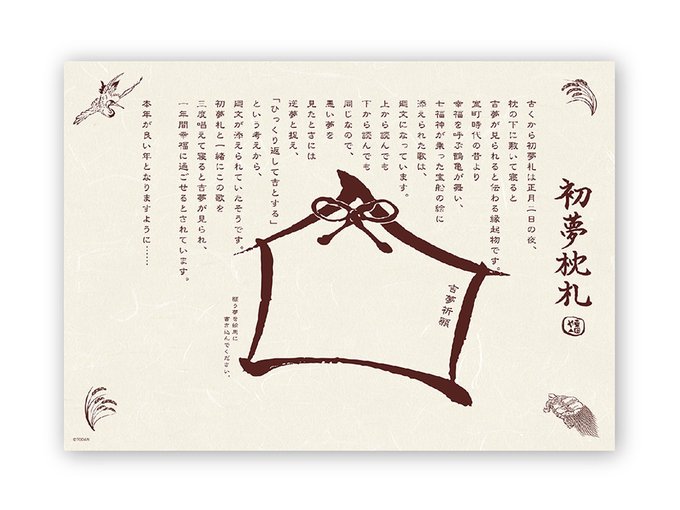 初夢枕札
古くから初夢札は正月二日の夜、
枕の下に敷いて寝ると
吉夢が見られると伝わる縁起物です。
室町時代の昔より
幸福を呼ぶ鶴亀が舞い、
七福神が乗った宝船の絵に
添えられた歌は、
廻文になっています。
上から読んでも
下から読んでも
同じなので、
悪い夢を
見たときには
逆夢と捉え、
「ひっくり返して吉とする」
という考えから、
廻文が添えられていたそうです。
初夢札と一緒にこの歌を
三度唱えて寝ると吉夢が見られ、
一年間幸福に過ごせるとされています。
本年が良い年となりますように……
吉夢祈願
願う夢を絵馬に
書き込んでください。
©TODAN